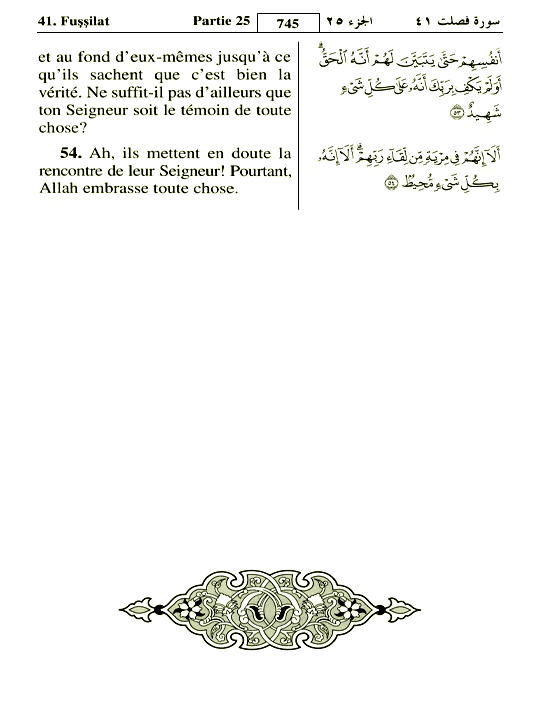 41. Fuṣṣilat Partie 25 745 الجزء ٢٥ سورة فصلت ٤١
et au fond d'eux-mêmes jusqu'à ce
qu'ils sachent que c'est bien la
vérité. Ne suffit-il pas d'ailleurs que
ton Seigneur soit le témoin de toute
chose?
54. Ah, ils mettent en doute la
rencontre de leur Seigneur! Pourtant,
Allah embrasse toute chose.
أَنفُسِهِمْ حَتَّىٰ يَتَبَيَّنَ لَهُمْ أَنَّهُ الْحَقُّ ۗ
أَوَلَمْ يَكْفِ بِرَبِّكَ أَنَّهُ عَلَىٰ كُلِّ شَيْءٍ
شَهِيدٌ ٥٣
أَلَا إِنَّهُمْ فِي مِرْيَةٍ مِّن لِّقَاءِ رَبِّهِمْ ۗ أَلَا إِنَّهُ
بِكُلِّ شَيْءٍ مُّحِيطٌ ٥٤